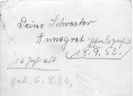 Deine Schwester
Annegret
15.9.52.
16 Jahr alt
geb. 6.9.36